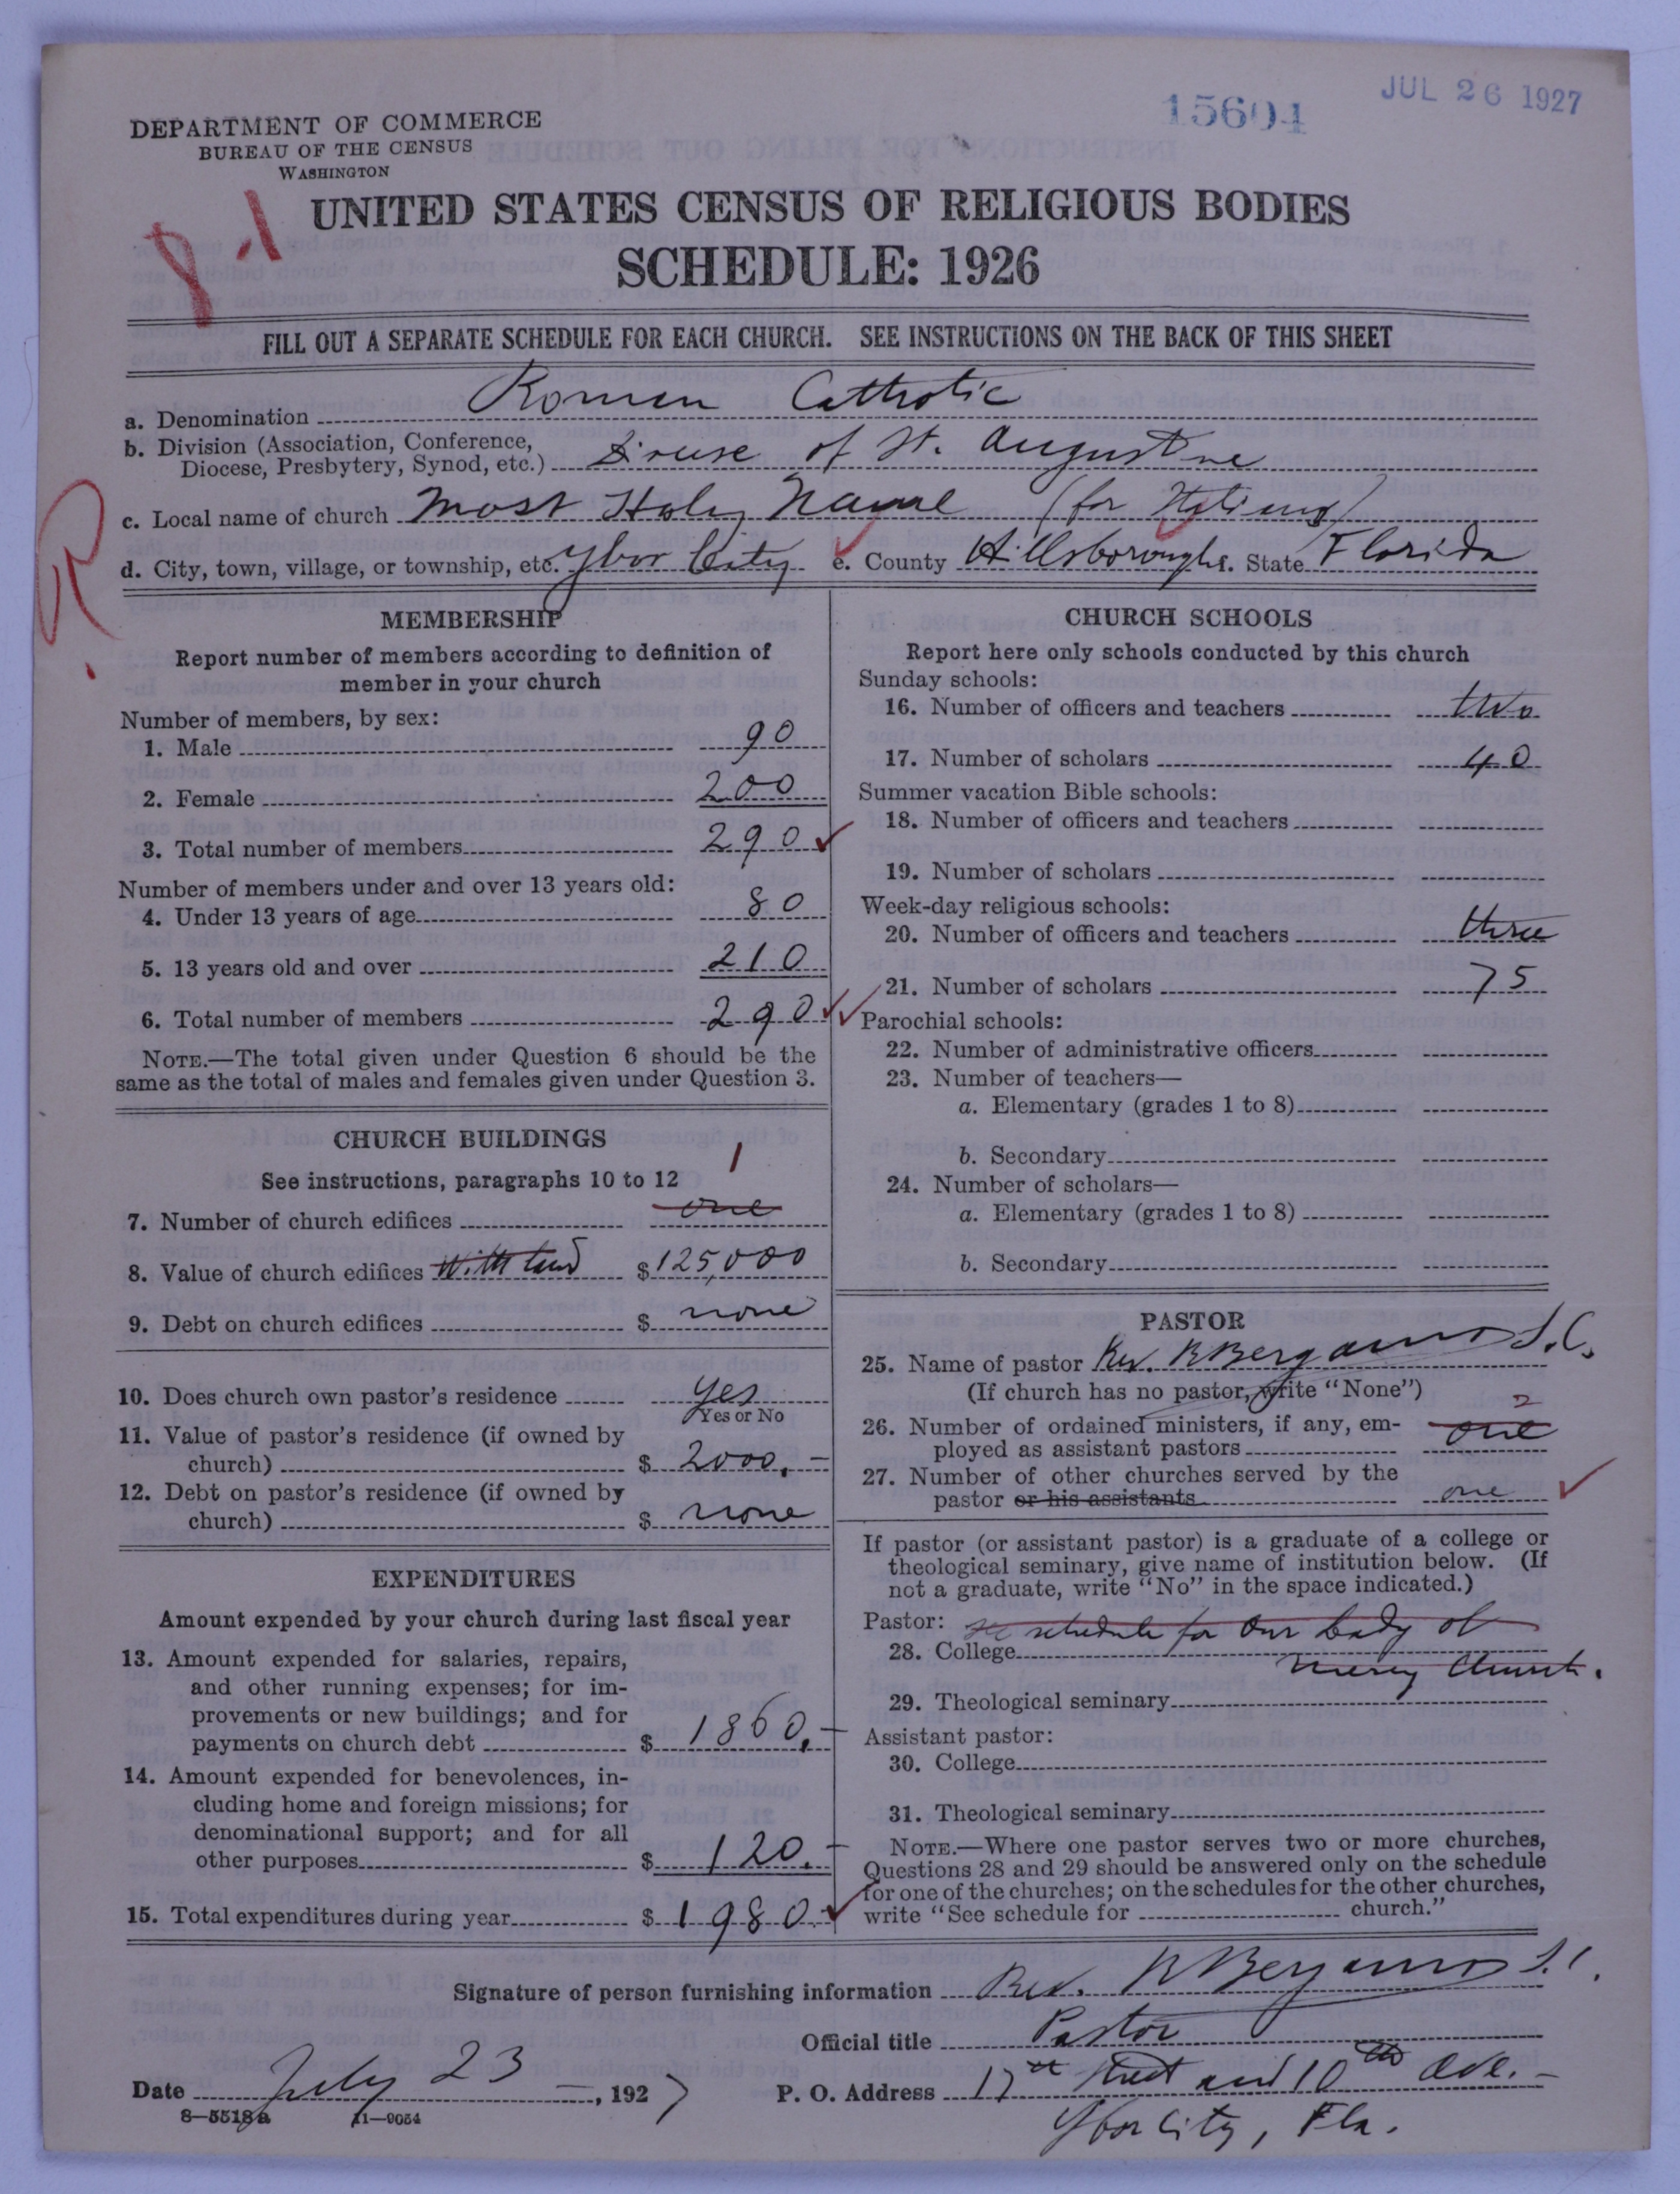 JUL 26 1927
15604
DEPARTMENT OF COMMERCE
BUREAU OF THE CENSUS
WASHINGTON
UNITED STATES CENSUS OF RELIGIOUS BODIES
SCHEDULE: 1926
FILL OUT A SEPARATE SCHEDULE FOR EACH CHURCH. SEE INSTRUCTIONS ON THE BACK OF THIS SHEET
a. Denomination Roman Catholic
b. Division (Association, Conference,
Diocese, Presbytery, Synod, etc.) Diocese of St. Augustine
c. Local name of church Most Holy Name (for Italians)
d. City, town, village, or township, etc. Ybor City e. County Hillsborough f. State Florida
R
MEMBERSHIP
Report number of members according to definition of
member in your church
Number of members, by sex:
1. Male 90
2. Female 200
3. Total number of members 290
Number of members under and over 13 years old:
4. Under 13 years of age 80
5. 13 years old and over 210
6. Total number of members 290
NOTE.—The total given under Question 6 should be the
same as the total of males and females given under Question 3.
CHURCH BUILDINGS
See instructions, paragraphs 10 to 12
1
7. Number of church edifices one
8. Value of church edifices With land $125,000
9. Debt on church edifices $ none
10. Does church own pastor's residence yes
Yes or No
11. Value of pastor's residence (if owned by
church) $ 2000.—
12. Debt on pastor's residence (if owned by
church) $ none
EXPENDITURES
Amount expended by your church during last fiscal year
13. Amount expended for salaries, repairs,
and other running expenses; for im-
provements or new buildings; and for
payments on church debt $ 1860.—
14. Amount expended for benevolences, in-
cluding home and foreign missions; for
denominational support; and for all
other purposes $ 120.—
15. Total expenditures during year $ 1980.—
CHURCH SCHOOLS
Report here only schools conducted by this church
Sunday schools:
16. Number of officers and teachers two
17. Number of scholars 40
Summer vacation Bible schools:
18. Number of officers and teachers
19. Number of scholars
Week-day religious schools:
20. Number of officers and teachers three
21. Number of scholars 75
Parochial schools:
22. Number of administrative officers
23. Number of teachers—
a. Elementary (grades 1 to 8)
b. Secondary
24. Number of scholars—
a. Elementary (grades 1 to 8)
b. Secondary
PASTOR
25. Name of pastor Rev. Bergamo S.C.
(If church has no pastor, write "None")
2
26. Number of ordained ministers, if any, em-
ployed as assistant pastors one
27. Number of other churches served by the
pastor or his assistants one
If pastor (or assistant pastor) is a graduate of a college or
theological seminary, give name of institution below. (If
not a graduate, write "No" in the space indicated.)
Pastor: see schedule for Our Lady of
28. College
Mercy Church.
29. Theological seminary
Assistant pastor:
30. College
31. Theological seminary
NOTE.—Where one pastor serves two or more churches,
Questions 28 and 29 should be answered only on the schedule
for one of the churches; on the schedules for the other churches,
write "See schedule for church."
Signature of person furnishing information Rev. Bergamo S.C.
Official title Pastor
Date July 23 —, 1927 P. O. Address 17th Street and 10th Ave.—
8—5518a 11—9054
Ybor City, Fla.